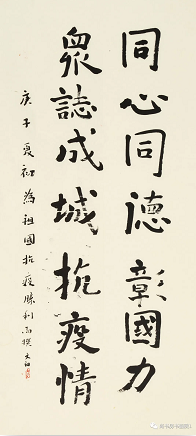 同心同德彰國力
眾誌成城抗疫情
庚子夏初為祖國抗疫勝利而撰文